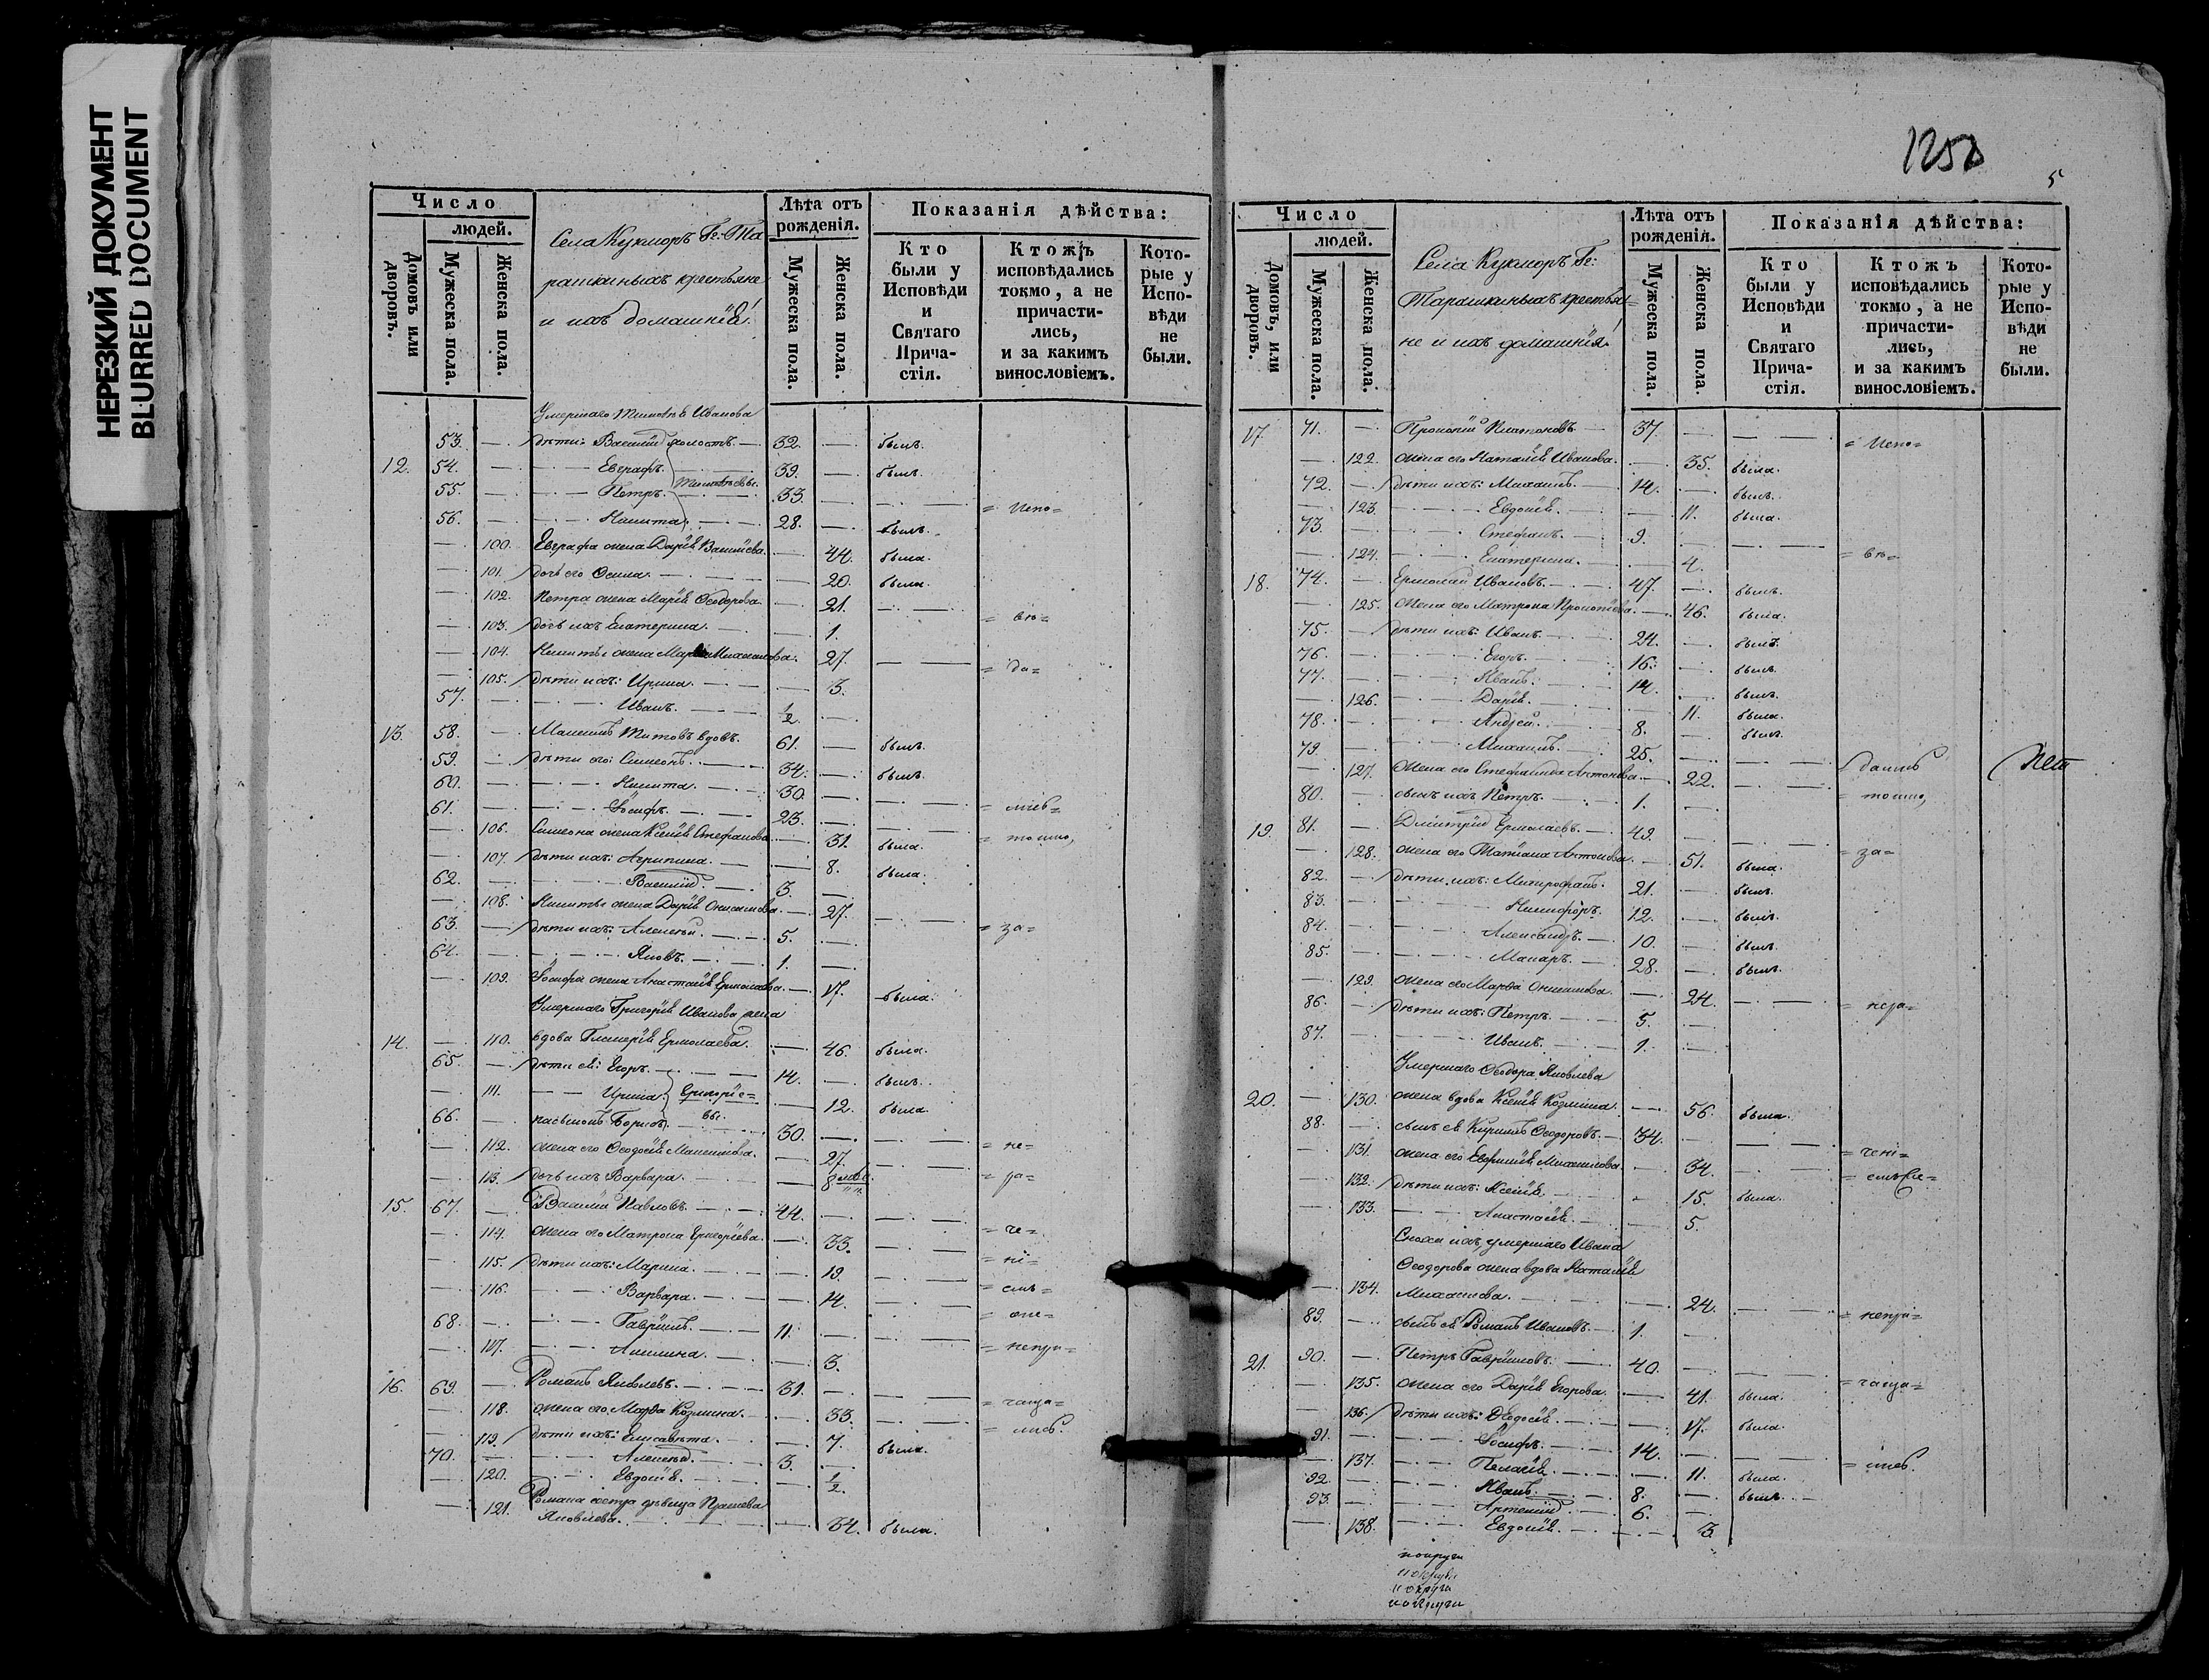 НЕРЕЗКИЙ ДОКУМЕНТ
BLURRED DOCUMENT
Число
людей.
Домовъ или дворовъ.
Мужеска пола.
Женска пола.
Села Кукморъ Гг. Та
рашкиныхъ крестьяне
и ихъ домашнія:
Лѣта отъ рожденія.
Мужеска пола.
Женска пола.
Показанія дѣйства:
Кто были у Исповѣди и Святаго Прича-стія.
Ктожъ исповѣдались токмо, а не причасти-лись, и за какимъ винословіемъ.
Кото-рые у Испо-вѣди не были.
Умершаго Тимоѳея Иванова
53. — дѣти: Василій холостъ. — 32. — былъ.
12. 54. — Евграфъ. 39. — былъ.
Тимоѳеевы.
55. — Петръ. 33. — = испо=
56. — Никита. 28. — былъ.
— 100. Евграфа жена Дарія Василіева. — 44. была.
— 101. дочь его — 20. была.
— 102. Петра жена Марія Ѳеодорова. — 21. = вѣ=
— 103. дочь ихъ Екатерина. — 1.
— 104. Никиты жена — 27. = да=
— 105. дѣти ихъ: Ирина. — 3.
57. — Иванъ. 1/2. —
13. 58. — Максимъ Титовъ вдовъ. 61. — былъ.
59. — дѣти его: Симеонъ. 34. — былъ.
60. — Никита. 30. —
61. — Іосифъ. 23. — = лись=
— 106. Симеона жена Ксенія Стефанова — 31. была. = токмо,
— 107. дѣти ихъ: Агрипина. — 8. была.
62. — Василій. 3. —
— 108. Никиты жена Дарія Онисимова. — 27. = за=
63. — дѣти ихъ: Алексѣй. 5. —
64. — Яковъ. 1. —
— 109. Іосифа жена Анастасія Ермолаева. — 17. была.
Умершаго Григорія Иванова жена
14. — 110. вдова Гликерія Ермолаева. — 46. была.
65. — дѣти ея: Егоръ. 14. — былъ.
— 111. — Ирина. Григорье= — 12. была.
66. — пасынокъ Борисъ. вы. 30. —
— 112. жена его Ѳеодосія Максимова. — 27. = не=
— 113. дочь ихъ Варвара. — 8 = ра=
15. 67. — Василій Павловъ. 44. — = че=
— 114. жена его Матрона Григоріева. — 33. = ні=
— 115. дѣти ихъ: Марина. — 19. = емъ=
— 116. — Варвара. — 14.
68. — Гавріилъ. 11. — = непри=
— 117. — Акилина. — 3.
16. 69. — Романъ Яковлевъ. 31. — = часца=
— 118. жена его Марѳа Козмина. — 33. = лись.
— 119. дѣти ихъ: Елисавета. — 7. была.
70. — Алексѣй. 3. —
— 120. — Евдокія. — 1/2.
Романа сестра дѣвица
— 121. Яковлева. — 34. была.
1250
5
Число
людей.
Домовъ, или дворовъ.
Мужеска пола.
Женска пола.
Села Кукморъ Гг:
Тарашкиныхъ крестья=
не и ихъ домашнія:
Лѣта отъ рожденія.
Мужеска пола.
Женска пола
Показанія дѣйства:
Кто были у Исповѣди и Святаго Прича-стія.
Ктожъ исповѣдались токмо, а не причасти-лись, и за какимъ винословіемъ.
Кото-рые у Испо-вѣди не были.
17. 71. — Прокопій Платоновъ. 37. — = Испо=
— 122. жена его Наталія Иванова. — 35. была.
72. — дѣти ихъ: Михаилъ. 14. — былъ.
— 123. — Евдокія. — 11. была.
73. — Стефанъ. 9. —
— 124. — Екатерина. — 4. = вѣ=
18. 74. — Ермолай Ивановъ. 47. — былъ.
— 125. Жена его Матрона Прокопіева. — 46. была.
75. — дѣти ихъ: Иванъ. 24. — былъ.
76. — Егоръ. 16. — былъ.
77. — Иванъ. 14. — былъ.
— 126. — Дарія. — 11. была.
78. — Андрей. 8. — былъ.
79 — Михаилъ. 25. — дались
— 127. Жена его Стефанида Антонова. — 22. = токмо,
80. — сынъ ихъ Петръ. 1. —
19. 81. — Дмитрій Ермолаевъ. 49. — = за=
— 128. жена его Татіана Антонова. — 51. была.
82. — дѣти ихъ: Митрофанъ. 21. — былъ.
83. — Никифоръ. 12. — былъ.
84. — Александръ. 10. — былъ.
85. — Макаръ. 28. — былъ.
— 129. жена его Марѳа Онисимова. — 24. = нера=
86. — дѣти ихъ: Петръ. 5. —
87. — Иванъ. 1. —
Умершаго Ѳеодора Яковлева
20. — 130. жена вдова Ксенія Козмина. — 56. была.
88. — сынъ ея Кирилъ Ѳеодоровъ. 34. — = чені=
— 131. жена его Евфимія Михаилова. — 34.
— 132. дѣти ихъ: Ксенія. — 15. была.
— 133. — Анастасія. — 5.
Сноха ихъ, умершаго Ивана
Ѳеодорова жена вдова Наталія
— 134. — 24. = непри=
89. — сынъ ея Романъ Ивановъ. 1. —
21. 90. — Петръ Гавріиловъ. 40. — = часца=
— 135. жена его Дарія Егорова. — 41. была.
— 136. дѣти ихъ: Ѳеодосія. — 17. была.
91. — Іосифъ. 14. — = лись.
— 137. — Пелагія. — 11. была.
92. — Иванъ. 8. — былъ.
93. — Артемій. 6. —
— 138. — Евдокія. — 3.